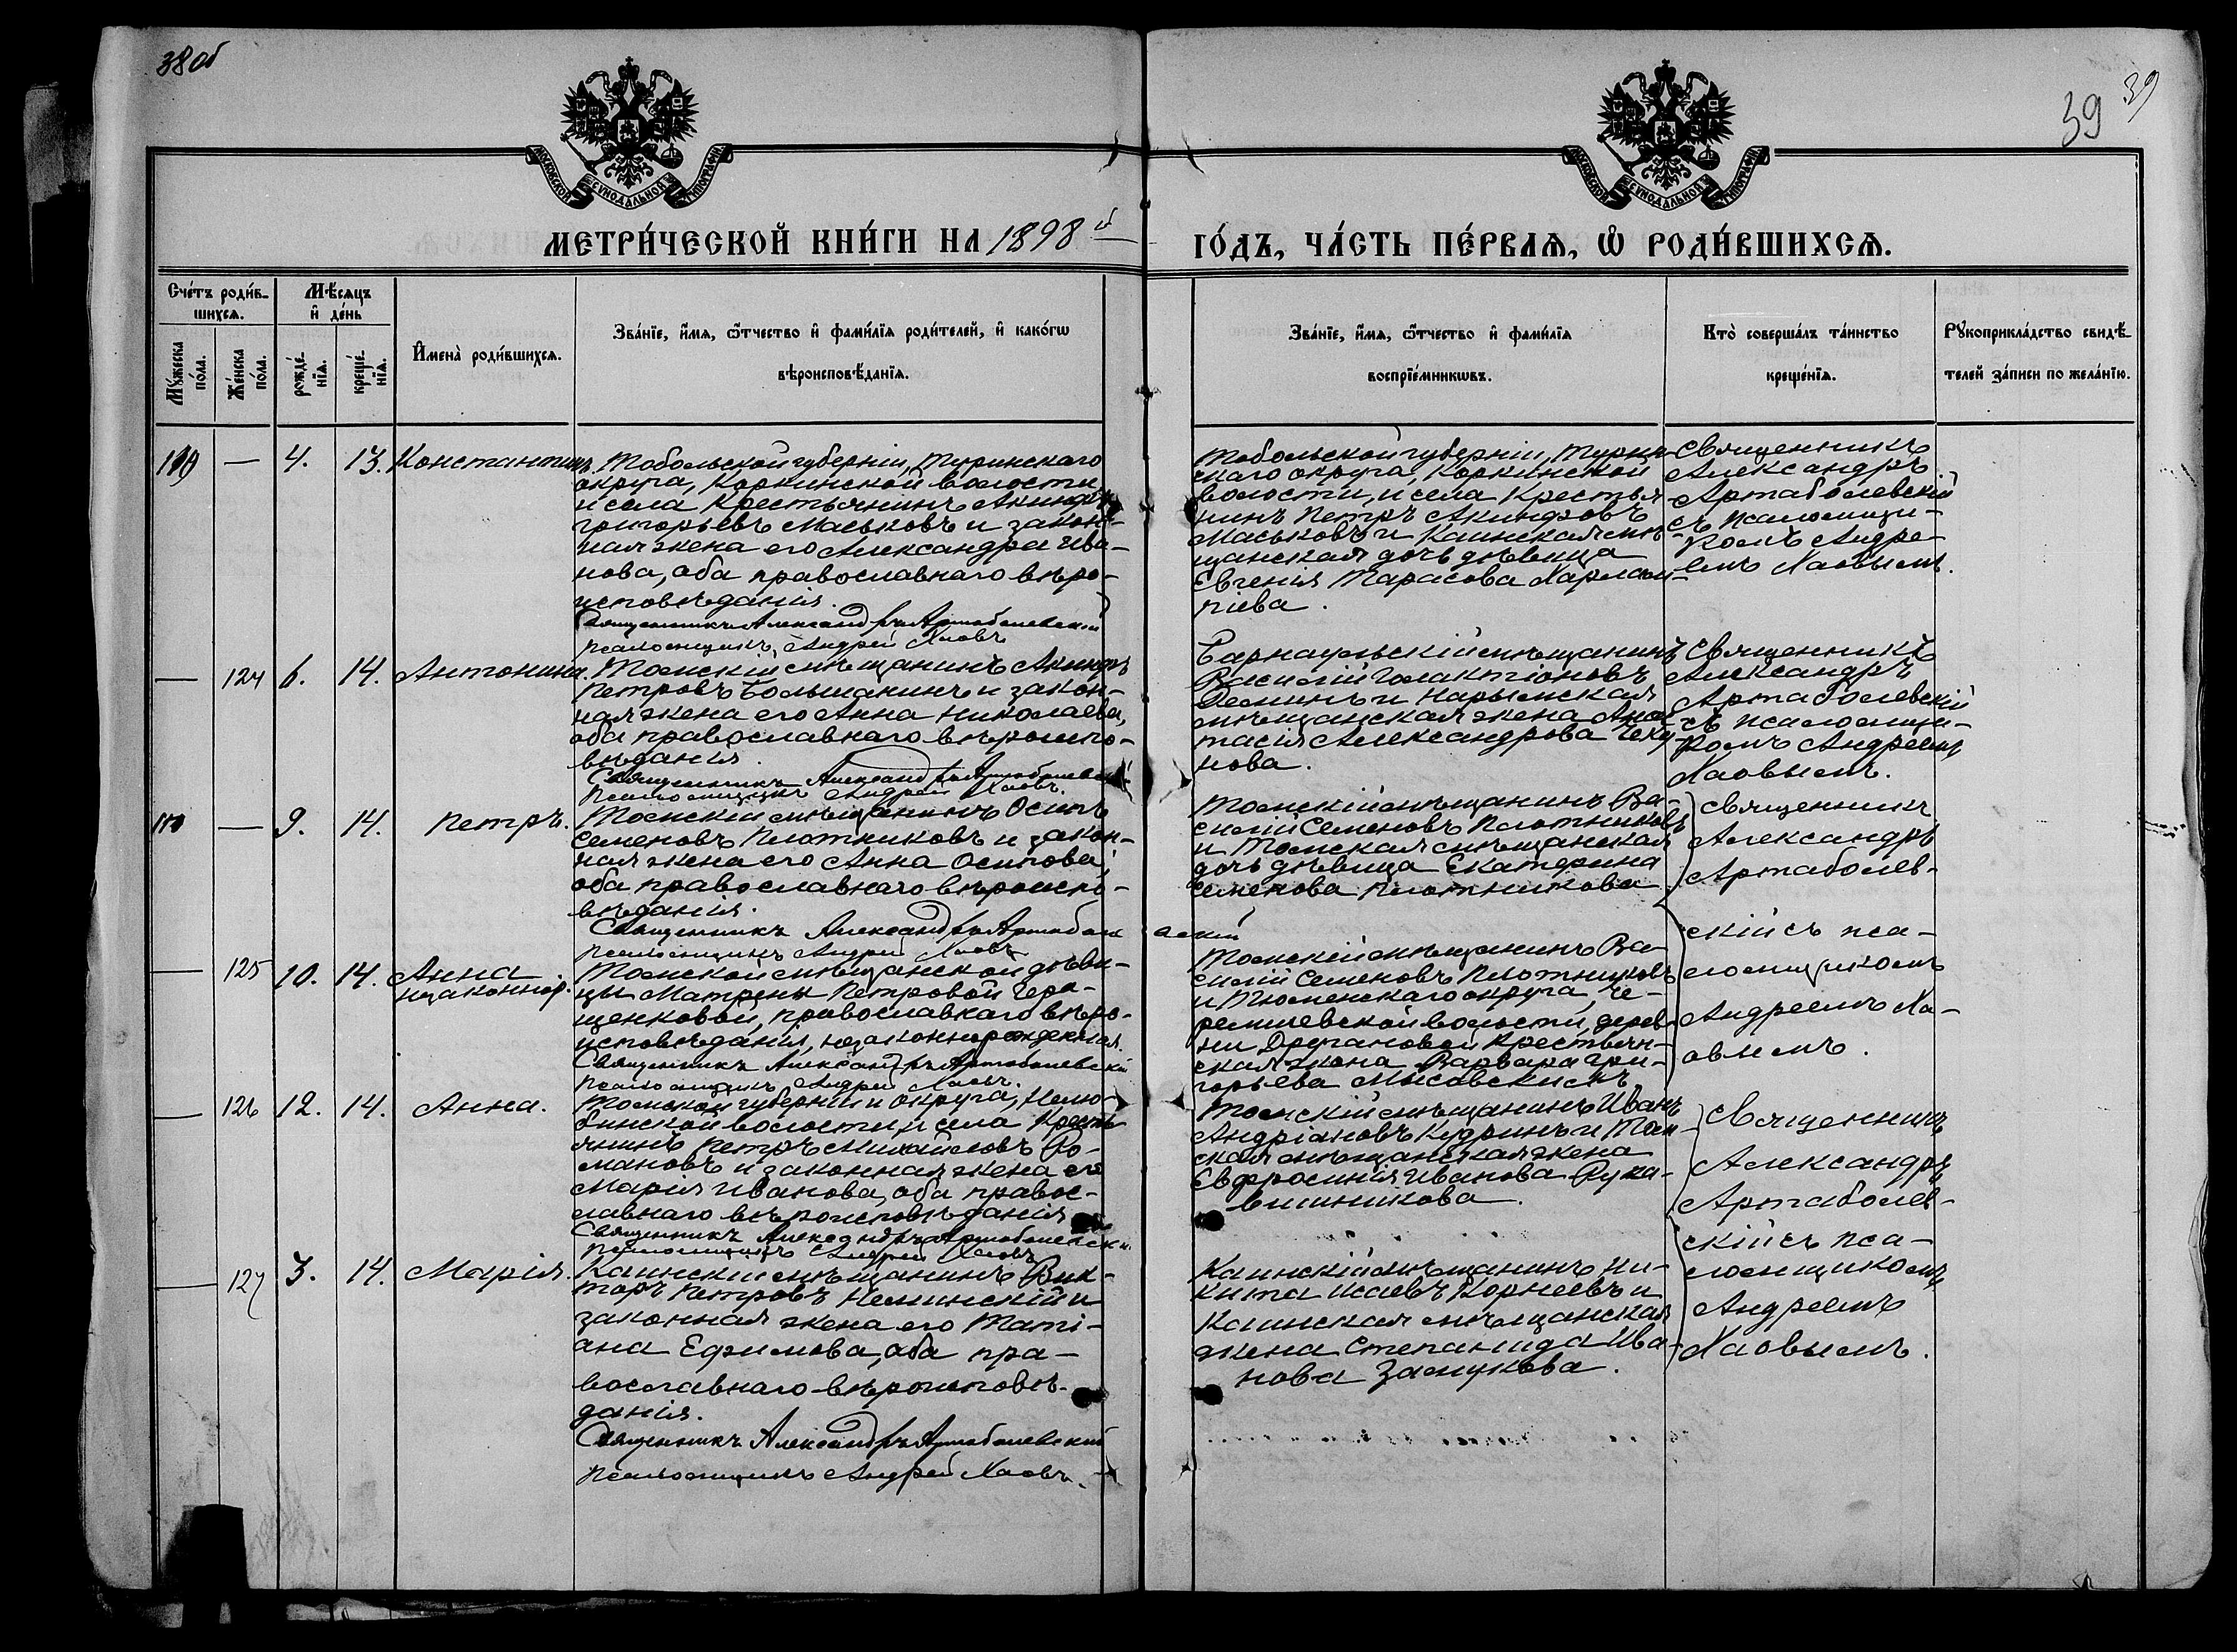 38 об
39 39
МОСКОВСКОЙ СѴНОДАЛЬНОЙ ТИПОГРАФІИ
МОСКОВСКОЙ СѴНОДАЛЬНОЙ ТИПОГРАФІИ
МЕТРИ́ЧЕСКОЙ КНИ́ГИ НА 1898 й ГО́ДЪ, ЧА́СТЬ ПЕ́РВАѦ, Ѽ РОДИ́ВШИХСѦ.
Сче́тъ роди́в-
шихсѧ.
Мꙋ́жеска по́ла.
Же́нска по́ла.
Мѣ́сѧцъ
и҆ де́нь
рожде́нїѧ.
креще́нїѧ.
И҆мена̀ роди́вшихсѧ.
Зва́нїе, и҆́мѧ, ѻ҆́тчество и҆ фами́лїѧ роди́телей, и҆ како́гѡ
вѣроисповѣ́данїѧ.
Зва́нїе, и҆́мѧ, ѻ҆́тчество и҆ фами́лїѧ
воспрїе́мникѡвъ.
Кто̀ соверша́лъ та́инство
креще́нїѧ.
Рꙋкоприкла́дство свидѣ́-
телей за́писи по жела́нїю.
— 4. 13. Константинъ.
Тобольской губерніи, Туринскаго
округа, Коркинской волости
и села Крестьянинъ Акиндинъ
Григорьевъ Маськовъ и закон-
ная жена его Александра Ива-
нова, оба православнаго вѣро-
исповѣданія.
Священникъ Александръ Артаболевскій
Псаломщикъ Андрей Хаовъ
Тобольской губерніи, Турин-
скаго округа, Коркинской
волости, и села Крестья-
нинъ Петръ Акиндиновъ
Маськовъ и Каинская мѣ-
щанская дочь дѣвица
Евгенія Тарасова Харлам-
піева.
Священникъ
Александръ
Артаболевскій
съ псаломщи-
комъ Андре-
емъ Хаовымъ.
— 124 6. 14. Антонина.
Томскій мѣщанинъ Акиндинъ
Петровъ Большанинъ и закон-
ная жена его Анна Николаева,
оба православнаго вѣроиспо-
вѣданія.
Священникъ Александръ Артаболевскій
Псаломщикъ Андрей Хаовъ.
Барнаульскій мѣщанинъ
Василій Галактіоновъ
Деминъ и Нарымская
мѣщанская жена Анас-
тасія Александрова
нова.
Священникъ
Александръ
Артаболевскій
съ псаломщи-
комъ Андреемъ
Хаовымъ.
110 — 9. 14. Петръ.
Томскій мѣщанинъ Осипъ
Семеновъ Плотниковъ и закон-
ная жена его Анна Осипова,
оба православнаго вѣроиспо-
вѣданія.
Священникъ Александръ Артаболевскій
Псаломщикъ Андрей Хаовъ
Томскій мѣщанинъ Ва-
силій Семеновъ Плотниковъ
и Томская мѣщанская
дочь дѣвица Екатерина
Семенова Плотникова
Священникъ
Александръ
Артаболев-
— 125 10. 14. Анна
незаконнор.
Томской мѣщанской дѣви-
цы Матрены Петровой Гера-
щенковой, православнаго вѣро-
исповѣданія, незаконнорожденная.
Священникъ Александръ Артаболевскій
Псаломщикъ Андрей Хаовъ.
Томскій мѣщанинъ Ва-
силій Семеновъ Плотниковъ
и Тюменскаго округа, Че-
ревишевской волости, дерев-
ни Дрегановой Крестьян-
ская жена Варвара Гри-
горьева
скій съ пса-
ломщикомъ
Андреемъ Ха-
овымъ.
— 126 12. 14. Анна.
Томской губерніи и округа, Нелю-
бинской волости, и села Кресть-
янинъ Петръ Михайловъ Ро-
мановъ и законная жена его
Марія Иванова, оба правос-
лавнаго вѣроисповѣданія
Священникъ Александръ Артаболевскій
Псаломщикъ Андрей Хаовъ
Томскій мѣщанинъ Иванъ
Андріановъ Кудринъ и Том-
ская мѣщанская жена
Евфросинія Иванова Рука-
вишникова.
Священникъ
Александръ
Артаболев-
— 127 3. 14. Марія.
Каинскій мѣщанинъ Вик-
торъ Петровъ Неминскій и
законная жена его Таті-
ана Ефимова, оба пра-
вославнаго вѣроисповѣ-
данія.
Священникъ Александръ Артаболевскій
Псаломщикъ Андрей Хаовъ.
Каинскій мѣщанинъ Ни-
кита Исаевъ Корнеевъ и
Каинская мѣщанская
жена Степанида Ива-
нова Замукова.
скій съ пса-
ломщикомъ
Андреемъ
Хаовымъ.